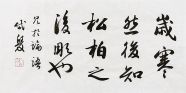 歲寒
然後知
松柏之
後彫也
見於論語